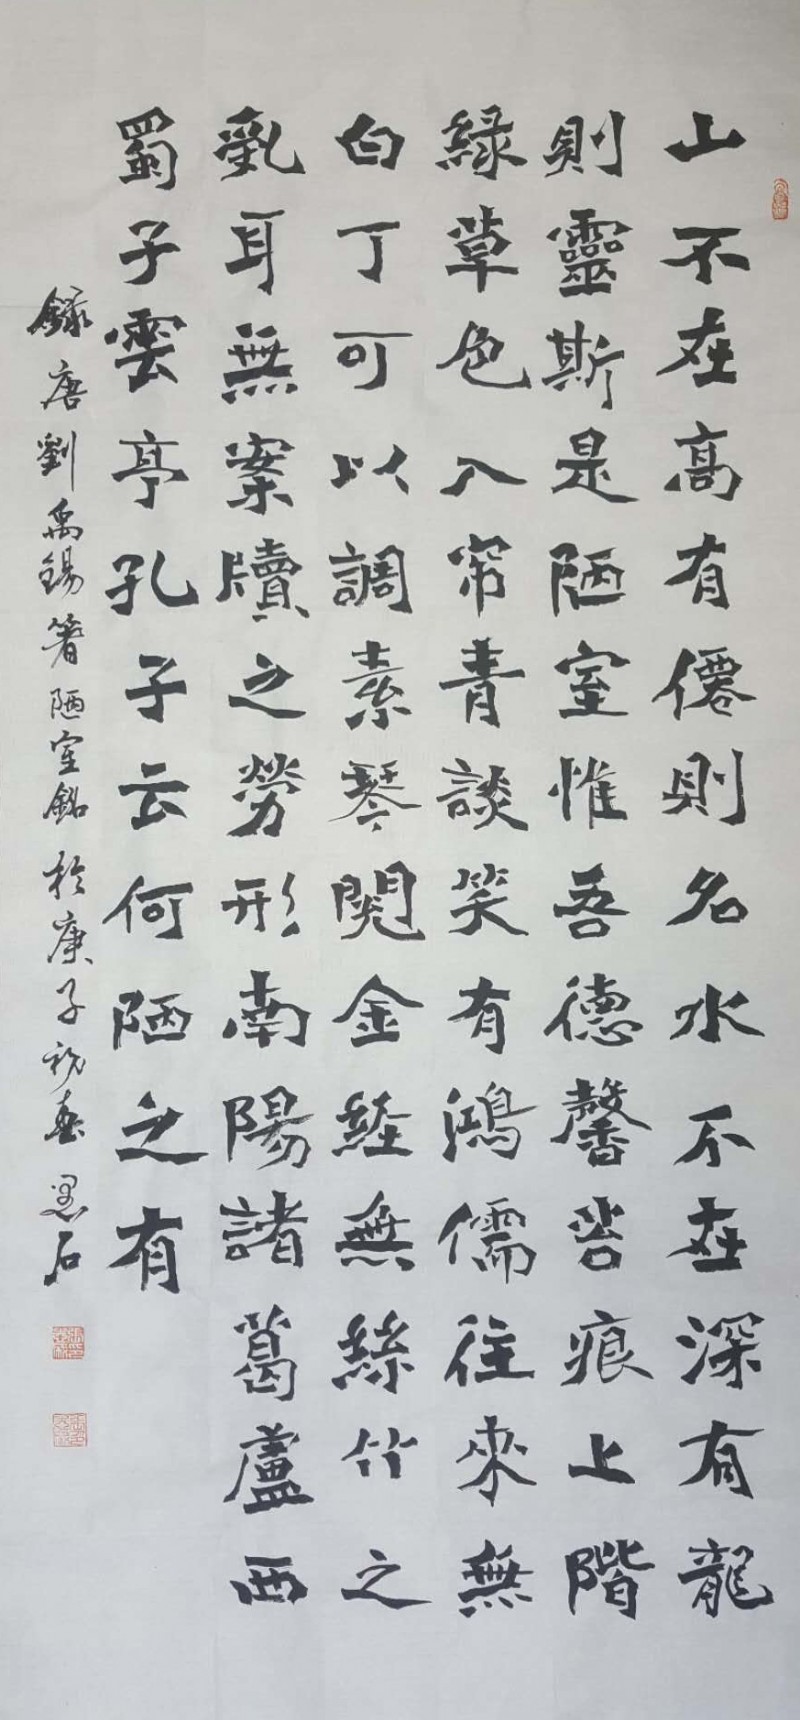 山不在高有僊則名水不在深有龍
則靈斯是陋室惟吾德馨苔痕上階
綠草色入帘青談笑有鴻儒往來無
白丁可以調素琴閱金経無絲竹之
亂耳無案牘之勞形南陽諸葛蘆西
蜀子雲亭孔子云何陋之有
錄唐劉禹錫箸陋室銘於庚子初春石